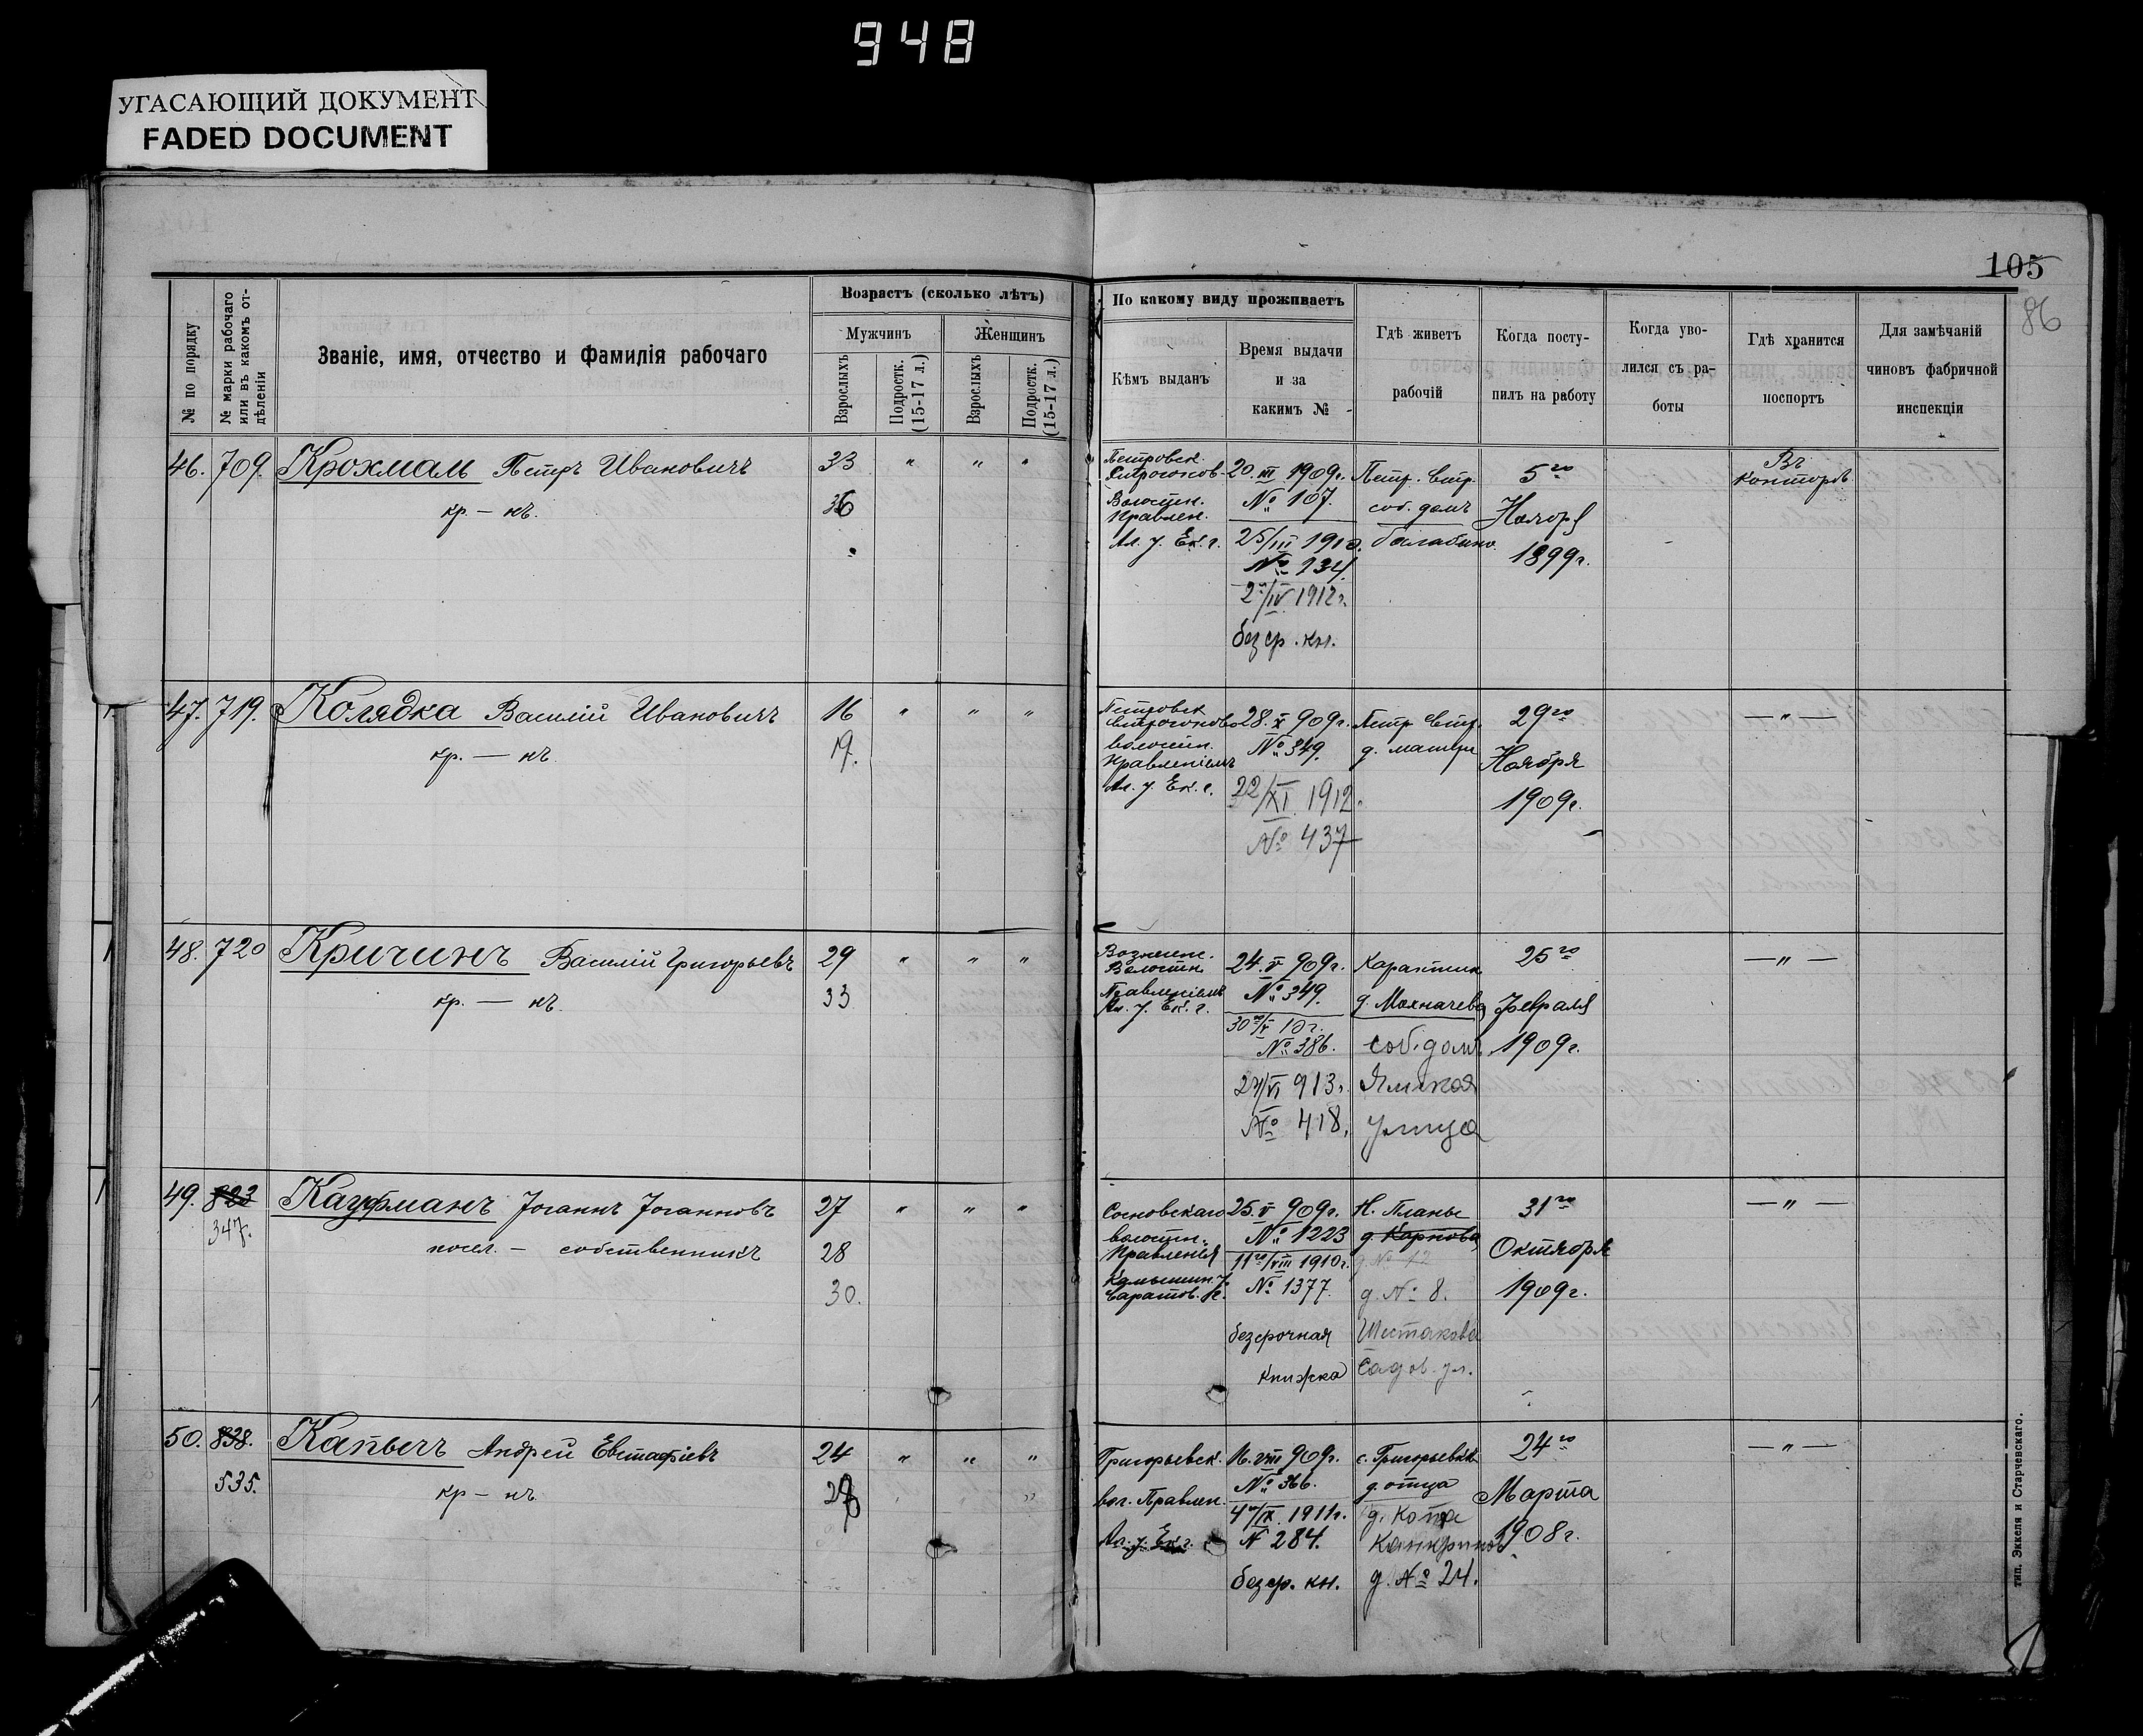 948
УГАСАЮЩИЙ ДОКУМЕНТ
FADED DOCUMENT
105
86
№ по порядку
№ марки рабочаго или въ какомъ отдѣленіи
Званіе, имя, отчество и фамилія рабочаго
Возрастъ (сколько лѣтъ)
Мужчинъ
Женщинъ
Взрослыхъ
Подростк. (15-17 л.)
Взрослыхъ
Подростк. (15-17 л.)
По какому виду проживаетъ
Кѣмъ выданъ
Время выдачи
и за
какимъ №
Гдѣ живетъ
рабочій
Когда посту-
пилъ на работу
Когда уво-
лился съ ра-
боты
Гдѣ хранится
поспортъ
Для замѣчаній
чиновъ фабричной
инспекціи
46. 709. Крохмаль Петръ Ивановичъ 33 " " "
кр. – нъ. 36
Петровск.
Волостн.
Правлен.
Ал. у. Ек. г.
20. III 1909г.
№ 107.
25/III 1910.
№ 134.
2/IV. 1912г.
безср. кн.
Петр. Стр.
соб. домъ
балабино.
5го
Ноября
1899г.
Въ
Конторѣ
47. 719. Колядка Василій Ивановичъ 16 " " "
кр. – нъ. 19.
Петровск
волостн.
Правленіемъ
Ал. у. Ек. г.
28. X 909г.
№ 349.
22/XI. 1912.
№ 437
Петр. Стр.
д. матери
29го
Ноября
1909г.
— " —
48. 720 Кричинъ Василій Григорьевъ 29 " " "
кр. – нъ. 33
Вознесенс.
Волостн.
Правленіемъ
Ал. у. Ек. г.
24. V 909г.
№ 349.
30го/V 10 г.
№ 386.
27/VI 913г.
№ 418.
Карантин
д. Мохначева
соб. домъ
Ямская
улица
25го
Февраля
1909г.
— " —
49. 823 Кауфманъ Іоганнъ Іоганновъ 27 " " "
347.
посел. – собственникъ 28
30.
Сосновскаго
волостн.
Правленія
Камышин. у.
Саратов. г.
25. V 909г.
№ 1223
11го/VIII 1910г.
№ 1377.
безсрочная
книжка
Н. Планы
д. Карпова
д. № 12
д. № 8.
Шестакова
Садов. ул.
31го
Октября
1909г.
— " —
50. 838. Капычъ Андрей Евстафіевъ 24 " " "
535.
кр – нъ.
Григорьевск.
вол. Правлен.
Ал. у. Ек. г.
16. VIII 909г.
№ 366.
4го/IX. 1911г.
N 284.
безср. кн.
с. Григорьевка
д. отца
д. Копа
д. № 24.
24го
Марта
1908г.
— " —
тип. Эккеля и Старчевскаго.